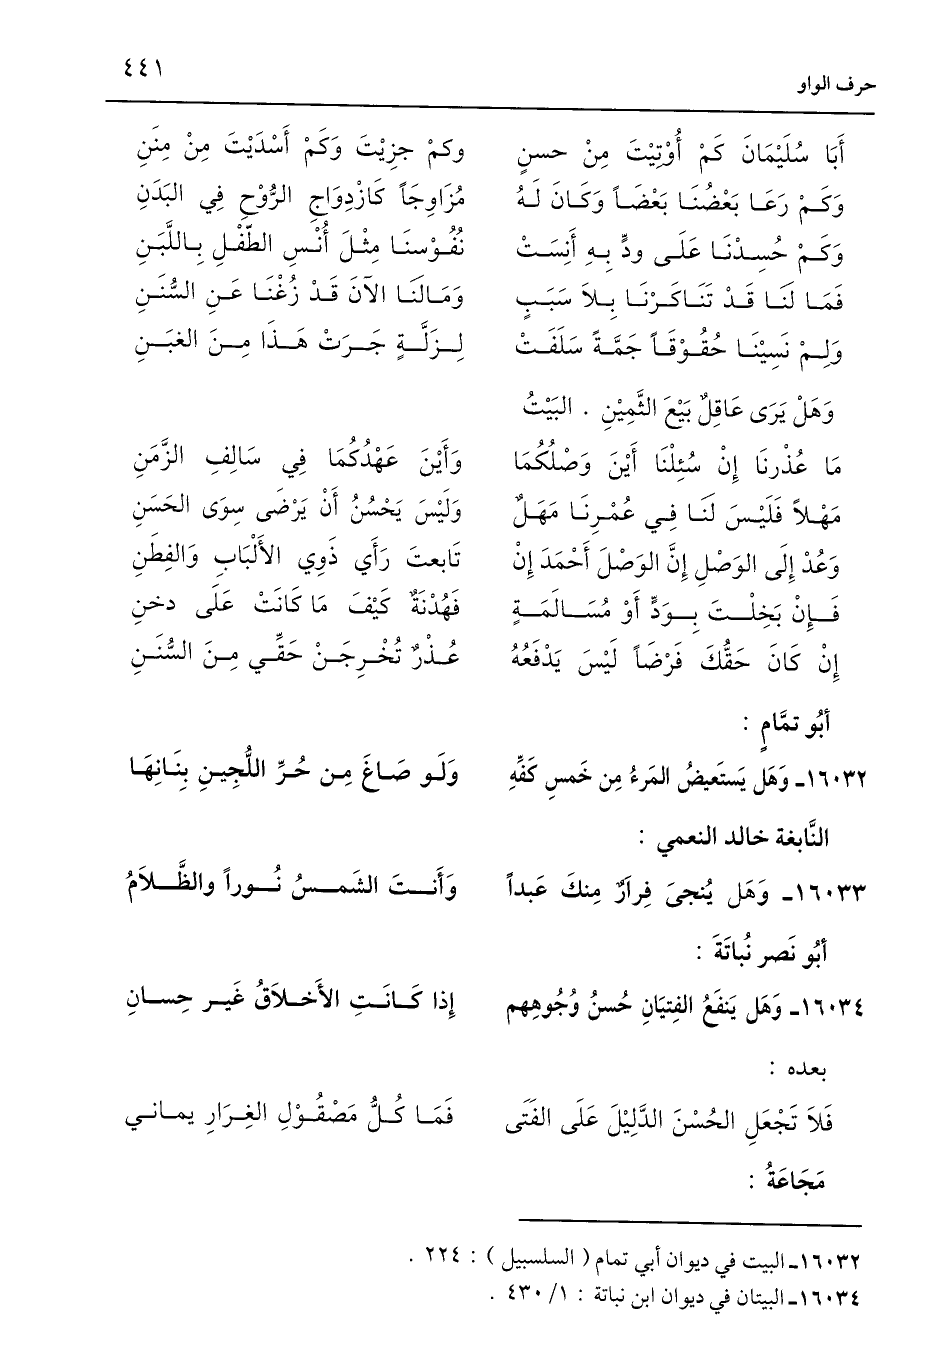 ٤٤١
حرف الواو
أَبَا سُلَيْمَانَ كَمْ أُوْتِيْتَ مِنْ حسنٍ وكمْ جزِيْتَ وَكَمْ أَسْدَيْتَ مِنْ مِنَنِ
وَكَمْ رَعَا بَعْضُنَا بَعْضَاً وَكَانَ لَهُ مُزَاوِجَاً كَازْدِوَاجِ الرُّوْحِ فِي البَدَنِ
وَكَمْ حُسِدْنَا عَلَى ودٍّ بِهِ أَنِسَتْ نُفُوْسنَا مِثْلَ أُنْسِ الطِّفْلِ بِاللَّبَنِ
فَمَا لَنَا قَدْ تَنَاكَرْنَا بِلاَ سَبَبٍ وَمَالَنَا الآنَ قَدْ زُغْنَا عَنِ السُّنَنِ
وَلِمْ نَسِيْنَا حُقُوْقَاً جَمَّةً سَلَفَتْ لِزَلَّةٍ جَرَتْ هَذَا مِنَ الغَبَنِ
وَهَلْ يَرَى عَاقِلٌ بَيْعَ الثَّمِيْنِ . البَيْتُ
مَا عُذْرنَا إِنْ سُئِلْنَا أَيْنَ وَصْلُكُمَا وَأَيْنَ عَهْدُكُمَا فِي سَالِفِ الزَّمَنِ
مَهْلاً فَلَيْسَ لَنَا فِي عُمْرِنَا مَهَلٌ وَلَيْسَ يَحْسُنُ أَنْ يَرْضَى سِوَى الحَسَنِ
وَعُدْ إِلَى الوَصْلِ إِنَّ الوَصْلَ أَحْمَدَ إِنْ تَابعتَ رَأي ذَوِي الأَلْبَابِ وَالفِطَنِ
فَإِنْ بَخِلْتَ بِوَدٍّ أَوْ مُسَالَمَةٍ فَهُدْنَةٌ كَيْفَ مَا كَانَتْ عَلَى دخنِ
إِنْ كَانَ حَقُّكَ فَرْضَاً لَيْسَ يَدْفَعُهُ عُذْرٌ تُخْرِجَنْ حَقِّي مِنَ السُّنَنِ
أَبُو تمَّامٍ :
١٦٠٣٢ـ وَهَل يَستَعيضُ المَرءُ مِن خَمسِ كَفِّهِ وَلَو صَاغَ مِن حُرِّ اللُّجينِ بِنَانِهَا
النَّابغة خالد النعمي :
١٦٠٣٣ـ وَهَل يُنجىَ فِرارٌ مِنكَ عَبداً وَأَنتَ الشَّمسُ نُوراً والظَّلاَمُ
أبُو نَصر نُباتَةَ :
١٦٠٣٤ـ وَهَل يَنفَعُ الفِتيَانِ حُسنُ وُجُوهِهِم إِذا كَانَتِ الأَخلاَقُ غَير حِسانِ
بعده :
فَلاَ تَجْعَلِ الحُسْنَ الدَّلِيْلَ عَلَى الفَتَى فَمَا كُلُّ مَصْقُوْلِ الغِرَارِ يماني
مَجَاعَةُ :
١٦٠٣٢ـ البيت في ديوان أبي تمام ( السلسبيل ) : ٢٢٤ .
١٦٠٣٤ـ البيتان في ديوان ابن نباتة : ١/ ٤٣٠ .